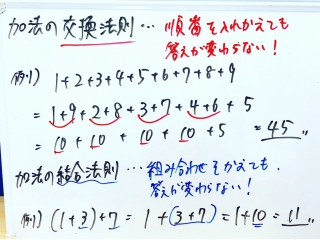 加法の交換法則… 順番を入れかえても
答えが変わらない！
例1) 1+2+3+4+5+6+7+8+9
= 1+9+2+8+3+7+4+6+5
= 10 + 10 + 10 + 10 + 5 = 45
加法の結合法則 … 組み合わせをかえても、
答えが変わらない！
例1) (1+3)+7 = 1+(3+7)=1+10=11